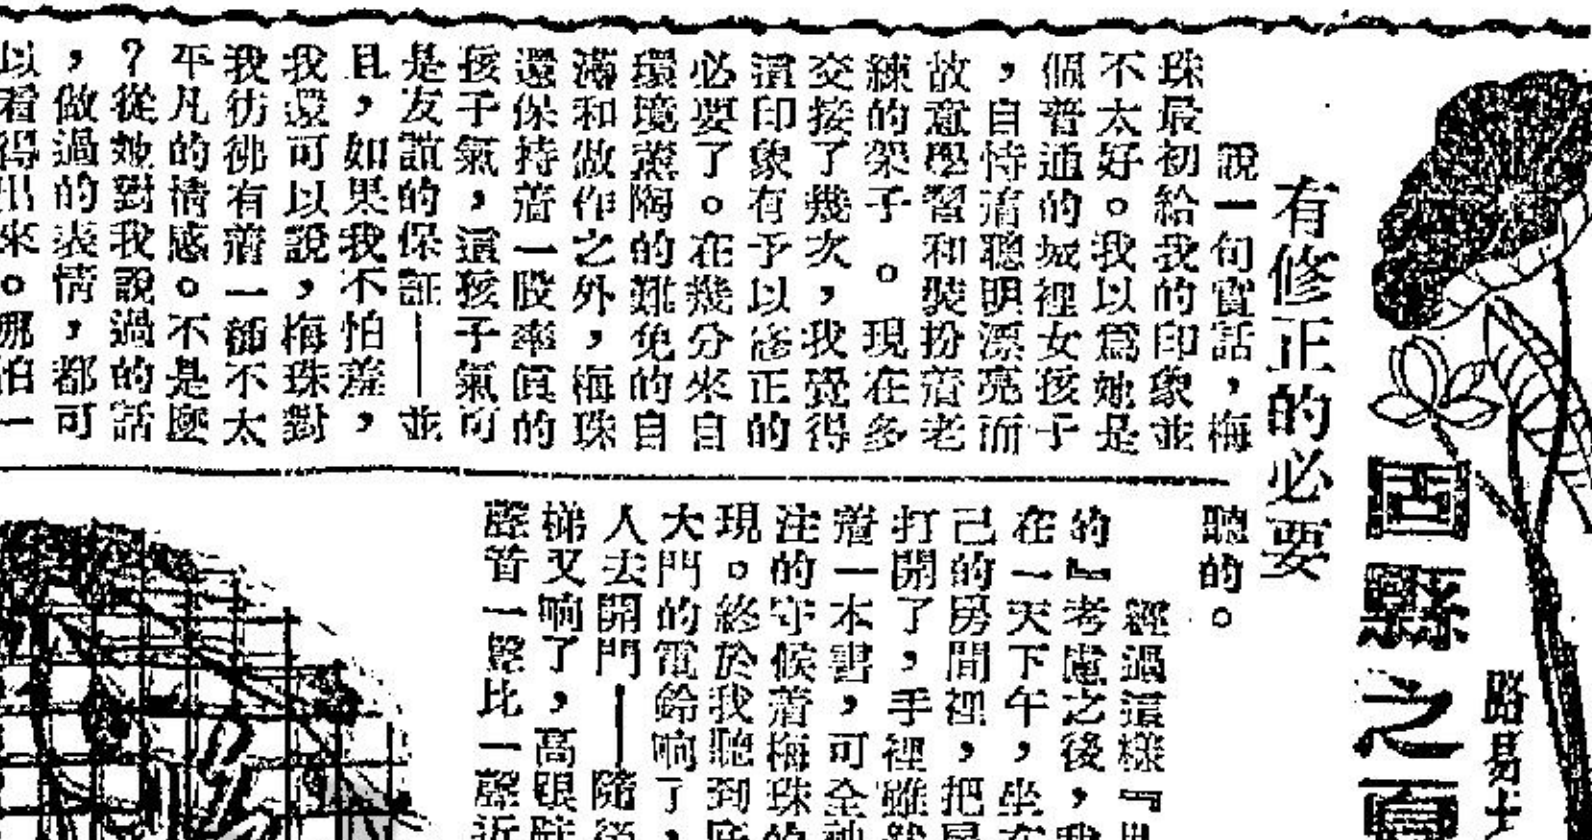 固縣之夏
路易士
有修正的必要
說一句實話，梅
珠最初給我的印象並
不太好。我以爲她是
個普通的城裡女孩子
，自恃着聰明漂亮而
故意學習和裝扮着老
練的架子。現在多
交接了幾次，我覺得
這印象有予以修正的
必要了。在幾分來自
環境薰陶的難免的自
滿和做作之外，梅珠
還保持着一股率眞的
孩子氣，這孩子氣可
是友誼的保証——並
且，如果我不怕羞，
我還可以說，梅珠對
我彷彿有着一種不太
平凡的情感。不是麼
？從她對我說過的話
，做過的表情，都可
以看得出來。哪怕一
聽的。
經過這樣『
的』考慮之後，我
在一天下午，坐在
己的房間裡，把房
打開了，手裡雖然
着一本書，可全神
注的守候着梅珠的
現。終於我聽到
大門的電鈴响了，
人去開門——隨後
梯又响了，高跟
聲音一聲比一聲近